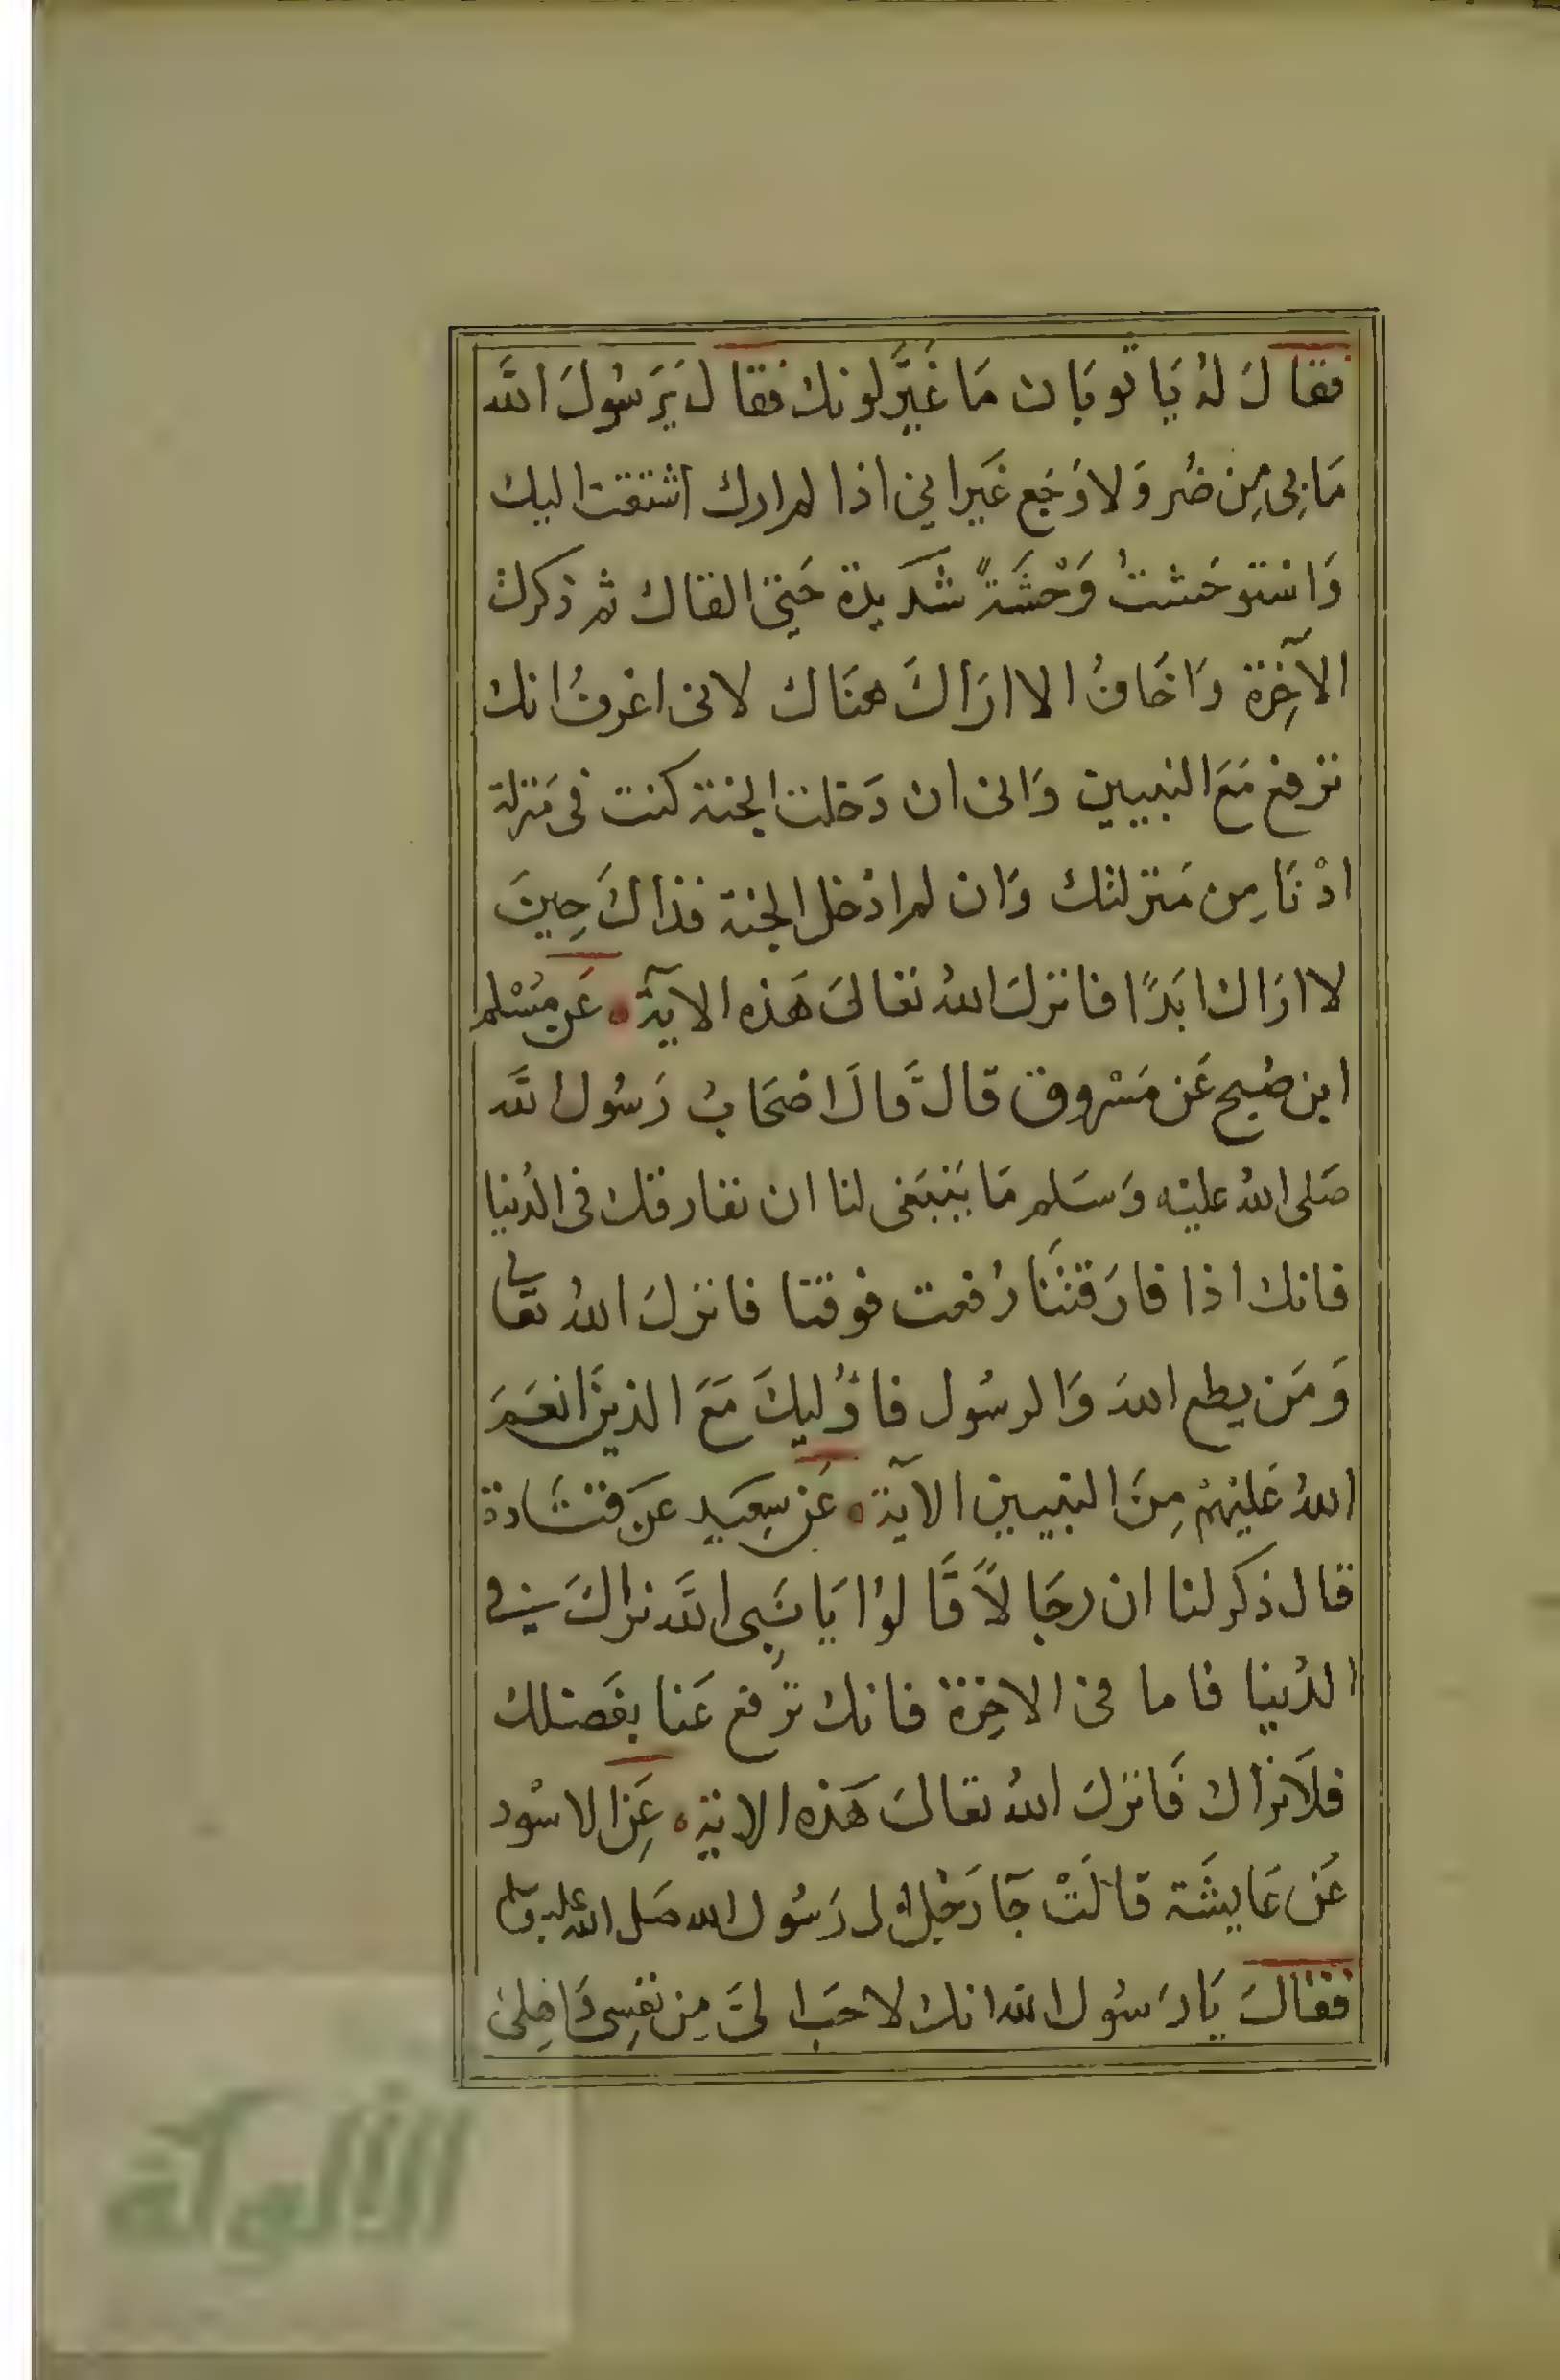 فقالَ لهُ يَا ثوبَان مَا غَيَّر لونك فقال يَرَسُولَ اللَّه
مَا بِي مِن ضُر وَلا وَجَع غَيراني اذا لم ارك اشتقت اليك
وَاستوحَشتُ وَحْشَةً شَديدة حَتى القاك ثم ذكرت
الآخِرة وَاخَافُ الا ارَاكَ هنَاك لانى اعرفُ انك
ترفع مَعَ النبيين وَانى ان دَخلت الجنة كنت فى مَنزلة
ادْنَا مِن مَنزلتك وَان لم ادْخل الجنة فذاكَ حِينَ
لا ارَاك ابَدًا فانزلَ اللهُ تعَالىَ هَذه الآية عَن مُسْلم
ابن صُبيح عَن مَسْروق قال قَالَ اصْحَابُ رَسُول اللَّه
صَلى اللهُ عليْه وَسَلم مَا يَنبَغى لنا ان نفارقك فى الدُنيا
فانك اذا فارَقتنَا رُفعت فوقنا فانزلَ اللهُ تعَالى
وَمَن يطع اللهَ وَالرسُول فاوُليكَ مَعَ الذينَ انعَمَ
اللهُ عَليْهمْ مِنَ النبيين الآية عَن سِعَيد عَن قتَادة
قال ذكر لنا ان رجَالاً قَالوُا يَا نَبِى اللَّه نراكَ فى
الدُنيا فاما فى الاخِرة فانك ترفع عَنا بفَضلك
فلاَ نراك فَانزلَ اللهُ تعَالىَ هَذه الاية عَنِ الاسْود
عَن عَايشَة قالَتْ جَآ رَجُلٌ الى رَسُول الله صَلى الله عليه وسلم
فقالَ يَا رَسُول الله انك لاحَب الىَّ مِن نفسِى وَاهِلىْ
الألوكة